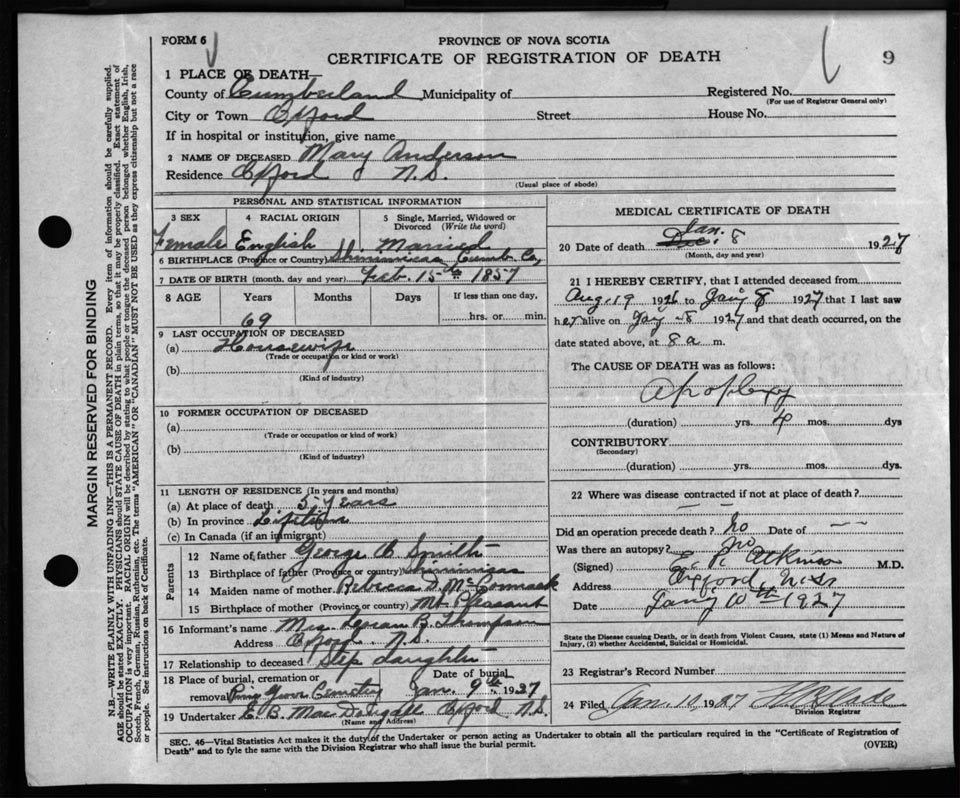 FORM 6
PROVINCE OF NOVA SCOTIA
CERTIFICATE OF REGISTRATION OF DEATH
9
1 PLACE OF DEATH—
County of Cumberland Municipality of
Registered No.
(For use of Registrar General only)
City or Town Oxford Street House No.
If in hospital or institution, give name
2 NAME OF DECEASED Mary Anderson
Residence Oxford N.S.
(Usual place of abode)
PERSONAL AND STATISTICAL INFORMATION
3 SEX 4 RACIAL ORIGIN 5 Single, Married, Widowed or Divorced (Write the word)
Female English Married
6 BIRTHPLACE (Province or Country) Shinimicas Cumb. Co,
7 DATE OF BIRTH (month, day and year) Feb. 15th 1857
8 AGE Years Months Days If less than one day,
69 hrs. or min.
9 LAST OCCUPATION OF DECEASED
(a) Housewife
(Trade or occupation or kind or work)
(b)
(Kind of industry)
10 FORMER OCCUPATION OF DECEASED
(a)
(Trade or occupation or kind of work)
(b)
(Kind of industry)
11 LENGTH OF RESIDENCE (In years and months)
(a) At place of death 5 years
(b) In province Lifetime
(c) In Canada (if an immigrant)
Parents
12 Name of father George Smith
13 Birthplace of father (Province or country) Shinimicas
14 Maiden name of mother Rebecca D. McCormack
15 Birthplace of mother (Province or country) Mt. Pleasant
16 Informant's name Mrs. B. Thompson
Address Oxford N.S.
17 Relationship to deceased Step daughter
18 Place of burial, cremation or removal Pine Grove Cemetery Date of burial Jan. 9th 1927
19 Undertaker E. B. MacDougall Oxford N.S.
(Name and Address)
MEDICAL CERTIFICATE OF DEATH
20 Date of death Dec. Jan. 8 1927
(Month, day and year)
21 I HEREBY CERTIFY, that I attended deceased from
Aug 19 1926 to Jany 8 1927 that I last saw
her alive on Jany 8 1927 and that death occurred, on the
date stated above, at 8 a m.
The CAUSE OF DEATH was as follows:
Apoplexy
(duration) yrs. 4 mos. dys
CONTRIBUTORY
(Secondary)
(duration) yrs. mos. dys.
22 Where was disease contracted if not at place of death?
Did an operation precede death? No Date of — —
Was there an autopsy? No
(Signed) E. R. Atkinson M.D.
Address Oxford, N.S.
Date Jany 10th 1927
State the Disease causing Death, or in death from Violent Causes, state (1) Means and Nature of
Injury, (2) whether Accidental, Suicidal or Homicidal.
23 Registrar's Record Number
24 Filed Jan. 11, 1927
Division Registrar
SEC. 46—Vital Statistics Act makes it the duty of the Undertaker or person acting as Undertaker to obtain all the particulars required in the "Certificate of Registration of
Death" and to fyle the same with the Division Registrar who shall issue the burial permit.
(OVER)
MARGIN RESERVED FOR BINDING
N.B.—WRITE PLAINLY WITH UNFADING INK—THIS IS A PERMANENT RECORD. Every item of information should be carefully supplied.
AGE should be stated EXACTLY. PHYSICIANS should STATE CAUSE OF DEATH in plain terms, so that it may be properly classified. Exact statement of
OCCUPATION is very important. RACIAL ORIGIN will be described by stating to what people or tongue the deceased person belonged whether English, Irish,
Scotch, French, German, Russian, Ruthenian, etc. The terms "AMERICAN" OR "CANADIAN" MUST NOT BE USED as they express citizenship but not a race
or people. See instructions on back of Certificate.